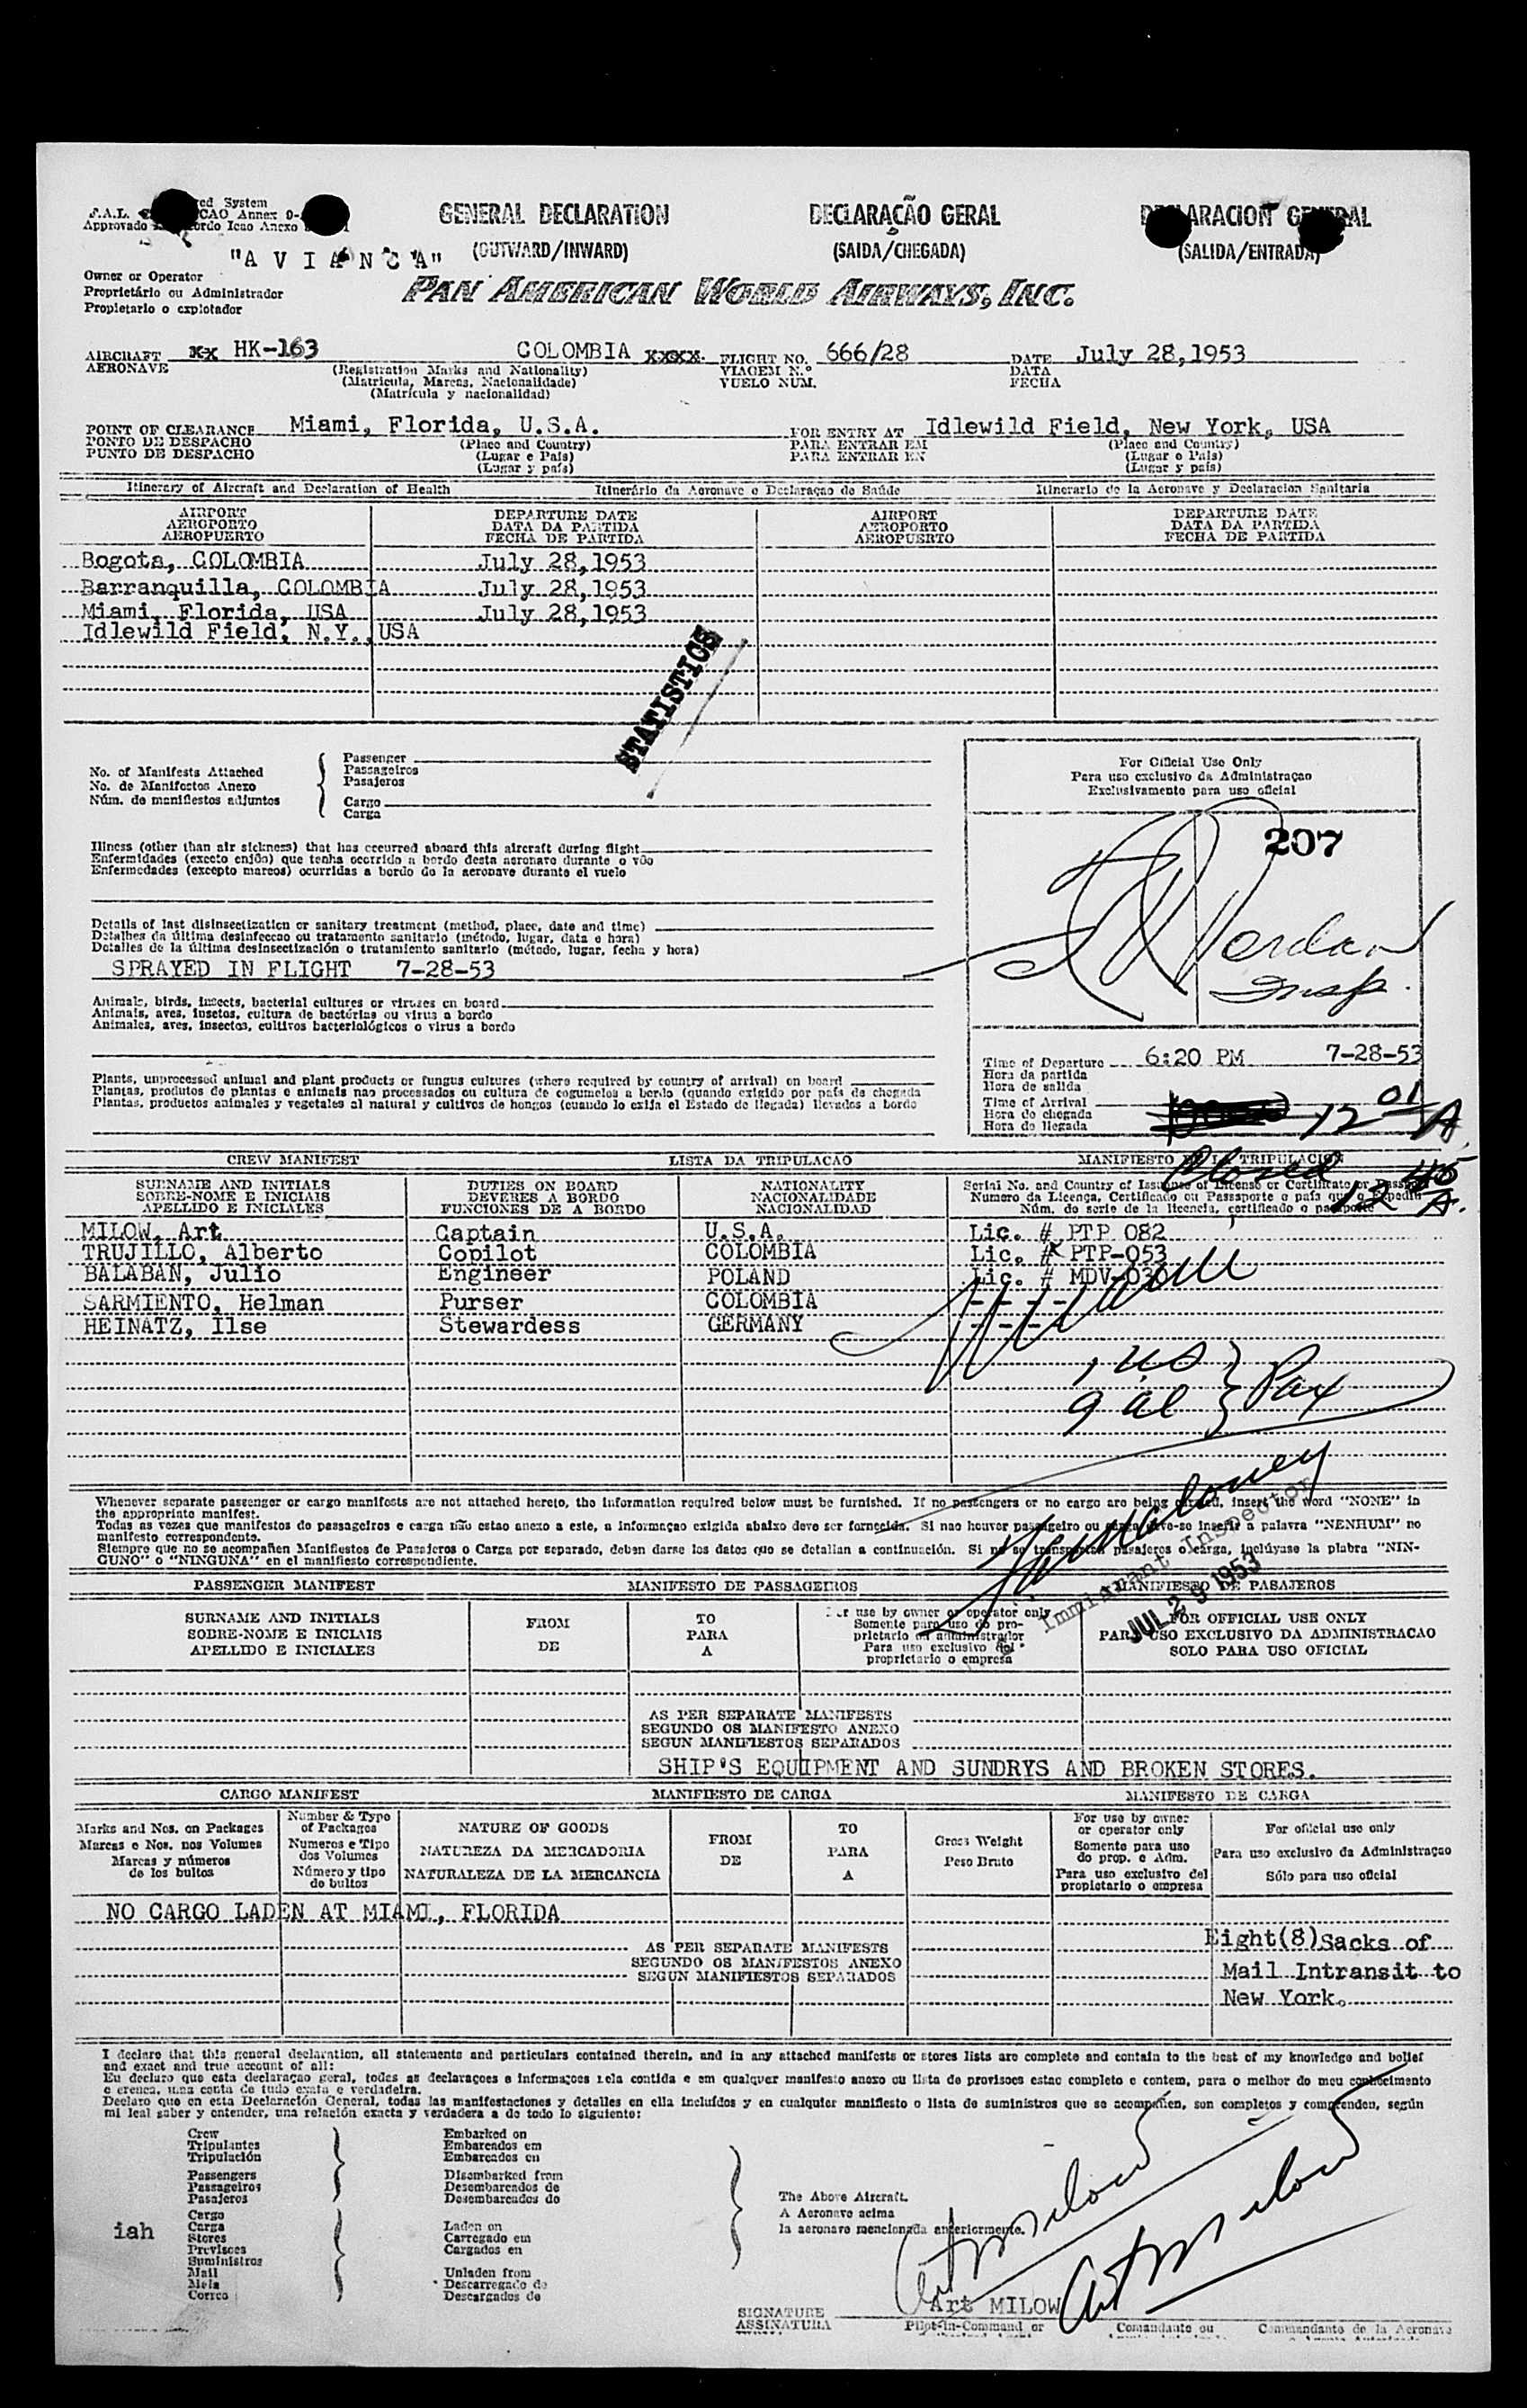 F.A.L. System
ICAO Annex 9-
Approvado Acordo Icao Anexo
GENERAL DECLARATION
(OUTWARD/INWARD)
DECLARAÇÃO GERAL
(SAIDA/CHEGADA)
DECLARACION GENERAL
(SALIDA/ENTRADA)
"A V I A N C A"
Owner or Operator
Proprietário ou Administrador
Propietario o explotador
PAN AMERICAN WORLD AIRWAYS, INC.
AIRCRAFT xx HK-163 COLOMBIA xxxx. FLIGHT NO. 666/28 DATE July 28,1953
AERONAVE (Registration Marks and Nationality) VIAGEM N.º DATA
(Matricula, Marcas, Nacionalidade) VUELO NUM. FECHA
(Matrícula y nacionalidad)
POINT OF CLEARANCE Miami, Florida, U.S.A. FOR ENTRY AT Idlewild Field, New York, USA
PONTO DE DESPACHO (Place and Country) PARA ENTRAR EM (Place and Country)
PUNTO DE DESPACHO (Lugar e País) PARA ENTRAR EN (Lugar e País)
(Lugar y país) (Lugar y país)
Itinerary of Aircraft and Declaration of Health Itinerário da Aeronave e Declaraçao de Saúde Itinerario de la Aeronave y Declaracion Sanitaria
AIRPORT DEPARTURE DATE AIRPORT DEPARTURE DATE
AEROPORTO DATA DA PARTIDA AEROPORTO DATA DA PARTIDA
AEROPUERTO FECHA DE PARTIDA AEROPUERTO FECHA DE PARTIDA
Bogota, COLOMBIA July 28,1953
Barranquilla, COLOMBIA July 28,1953
Miami, Florida, USA July 28,1953
Idlewild Field, N.Y., USA
STATISTICS
No. of Manifests Attached
No. de Manifectos Anexo
Núm. de manifiestos adjuntos
Passenger
Passageiros
Pasajeros
Cargo
Carga
For Official Use Only
Para uso exclusivo da Administraçao
Exclusivamente para uso oficial
207
Insp.
Illness (other than air sickness) that has occurred aboard this aircraft during flight
Enfermidades (exceto enjôo) que tenha ocorrido a bordo desta aeronave durante o vôo
Enfermedades (excepto mareos) ocurridas a bordo de la aeronave durante el vuelo
Details of last disinsectization or sanitary treatment (method, place, date and time)
Detalhes da última desinfeccao ou tratamento sanitario (método, lugar, data e hora)
Detalles de la última desinsectización o tratamiento sanitario (método, lugar, fecha y hora)
SPRAYED IN FLIGHT 7-28-53
Animals, birds, insects, bacterial cultures or viruses on board
Animais, aves, insetos, cultura de bactérias ou virus a bordo
Animales, aves, insectos, cultivos bacteriológicos o virus a bordo
Plants, unprocessed animal and plant products or fungus cultures (where required by country of arrival) on board
Plantas, produtos de plantas e animais nao processados ou cultura de cogumelos a bordo (quando exigido por país de chegada
Plantas, productos animales y vegetales al natural y cultivos de hongos (cuando lo exija el Estado de llegada) llevados a bordo
Time of Departure 6:20 PM 7-28-53
Hora da partida
Hora de salida
Time of Arrival 12 01 A
Hora do chegada
Hora de llegada
Closed 12 45 A.
CREW MANIFEST LISTA DA TRIPULACAO MANIFIESTO DE LA TRIPULACION
SURNAME AND INITIALS DUTIES ON BOARD NATIONALITY Serial No. and Country of Issuance of License or Certificate or Passport
SOBRE-NOME E INICIAIS DEVERES A BORDO NACIONALIDADE Numero da Licença, Certificado ou Passaporte o país que o Expediu
APELLIDO E INICIALES FUNCIONES DE A BORDO NACIONALIDAD Núm. do serie de la licencia, certificado o pasaporte
MILOW, Art Captain U.S.A. Lic. # PTP 082
TRUJILLO, Alberto Copilot COLOMBIA Lic. # PTP-053
BALABAN, Julio Engineer POLAND Lic. # MDV-030
SARMIENTO, Helman Purser COLOMBIA - - - -
HEINATZ, Ilse Stewardess GERMANY - - - -
1 us
9 al } Pax
Whenever separate passenger or cargo manifests are not attached hereto, the information required below must be furnished. If no passengers or no cargo are being carried, insert the word "NONE" in
the appropriate manifest.
Todas as vezes que manifestos de passageiros e carga não estao anexo a este, a informaçao exigida abaixo deve ser fornecida. Si nao houver passageiro ou carga deve-se inserir a palavra "NENHUM" no
manifesto correspondente.
Siempre que no se acompañen Manifiestos de Pasajeros o Carga por separado, deben darse los datos que se detallan a continuación. Si no se transportan pasajeros o carga, inclúyase la plabra "NIN-
GUNO" o "NINGUNA" en el manifiesto correspondiente.
Immigrant Inspector
JUL 29 1953
PASSENGER MANIFEST MANIFESTO DE PASSAGEIROS MANIFIESTO DE PASAJEROS
SURNAME AND INITIALS FROM TO For use by owner or operator only FOR OFFICIAL USE ONLY
SOBRE-NOME E INICIAIS DE PARA Somente para uso do pro- PARA USO EXCLUSIVO DA ADMINISTRACAO
APELLIDO E INICIALES A prietario ou administrador SOLO PARA USO OFICIAL
Para uso exclusivo del
proprietario o empresa
AS PER SEPARATE MANIFESTS
SEGUNDO OS MANIFESTO ANEXO
SEGUN MANIFIESTOS SEPARADOS
SHIP'S EQUIPMENT AND SUNDRYS AND BROKEN STORES.
CARGO MANIFEST MANIFIESTO DE CARGA MANIFESTO DE CARGA
Marks and Nos. on Packages Number & Type of Packages NATURE OF GOODS FROM TO Gross Weight For use by owner or operator only For official use only
Marcas e Nos. nos Volumes Numeros e Tipo dos Volumes NATUREZA DA MERCADORIA DE PARA Peso Bruto Somente para uso do prop. e Adm. Para uso exclusivo da Administraçao
Marcas y números de los bultos Número y tipo de bultos NATURALEZA DE LA MERCANCIA A Para uso exclusivo del propietario o empresa Sólo para uso oficial
NO CARGO LADEN AT MIAMI, FLORIDA
AS PER SEPARATE MANIFESTS
SEGUNDO OS MANIFESTOS ANEXO
SEGUN MANIFIESTOS SEPARADOS
Eight(8)Sacks of
Mail Intransit to
New York.
I declare that this general declaration, all statements and particulars contained therein, and in any attached manifests or stores lists are complete and contain to the best of my knowledge and belief
and exact and true account of all:
Eu declaro que esta declaraçao geral, todas as declaraçoes e informaçoes nela contida e em qualquer manifesto anexo ou lista de provisoes estao completo e contem, para o melhor do meu conhecimento
e crenca, uma conta de tudo exata e verdadeira.
Declaro que en esta Declaración General, todas las manifestaciones y detalles en ella incluídos y en cualquier manifiesto o lista de suministros que se acompañen, son completos y comprenden, según
mi leal saber y entender, una relación exacta y verdadera a de todo lo siguiente:
Crew Embarked on
Tripulantes Embarcados em
Tripulación Embarcados en
Passengers Disembarked from
Passageiros Desembarcados de
Pasajeros Desembarcados do
Cargo
Carga Laden on
Stores Carregado em
Previsoes Cargados en
Suministros
Mail Unladen from
Mala Descarregado de
Correo Descargados de
iah
The Above Aircraft.
A Aeronave acima
la aeronave mencionada anteriormente.
Art Milow
Art Milow
Art MILOW
SIGNATURE
ASSINATURA
Pilot-in-Command or Comandante ou Commandante de la Aeronave